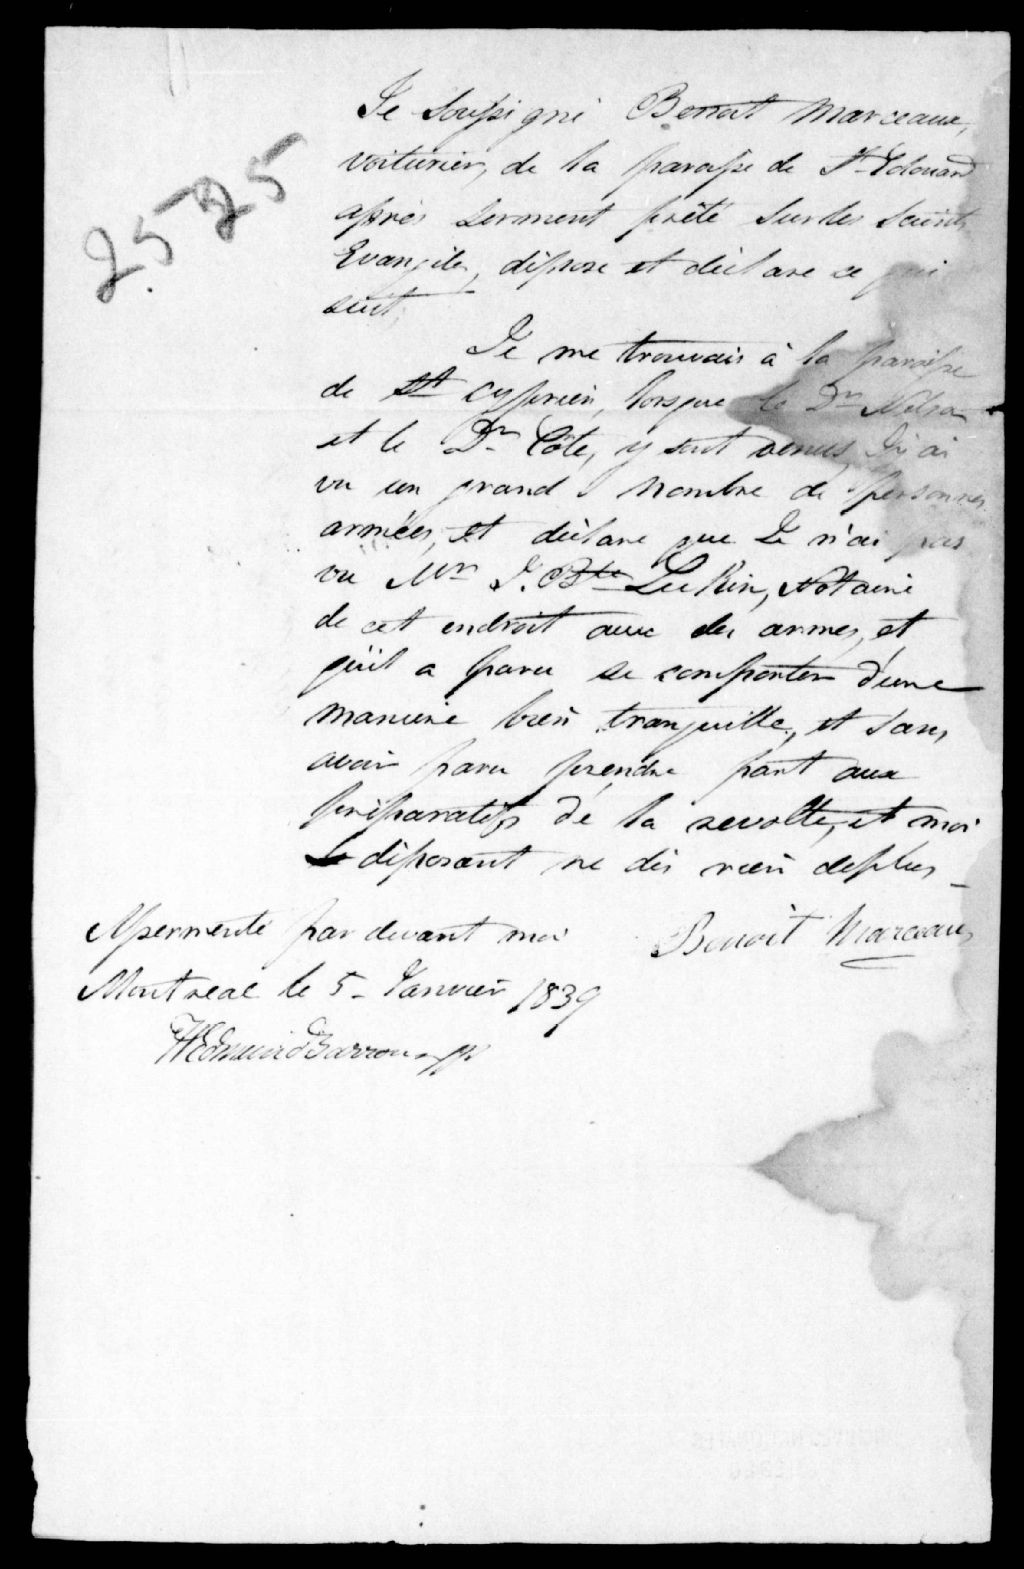 2525
Je Soussigné Benoit Marceaux,
voiturier, de la paroisse de St Edouard
après serment prêté sur les Saints
Evangiles, dépose et déclare ce qui
suit,
Je me trouvais à la paroisse
de St Cyprien, lorsque le Dr Nelson
et le Dr Côte, y sont venus, J'y ai
vu un grand nombre de personnes
armées, et déclare que Je n'ai pas
vu Mr J. Bte Lukin, Notaire
de cet endroit avec des armes, et
qu'il a paru se comporter d'une
manière bien tranquille, et sans
avoir paru prendre part aux
préparatifs de la revolte, et moi
déposant ne dis rien de plus _
Assermenté par devant moi
Benoit Marceau
Montreal le 5 - Janvier 1839